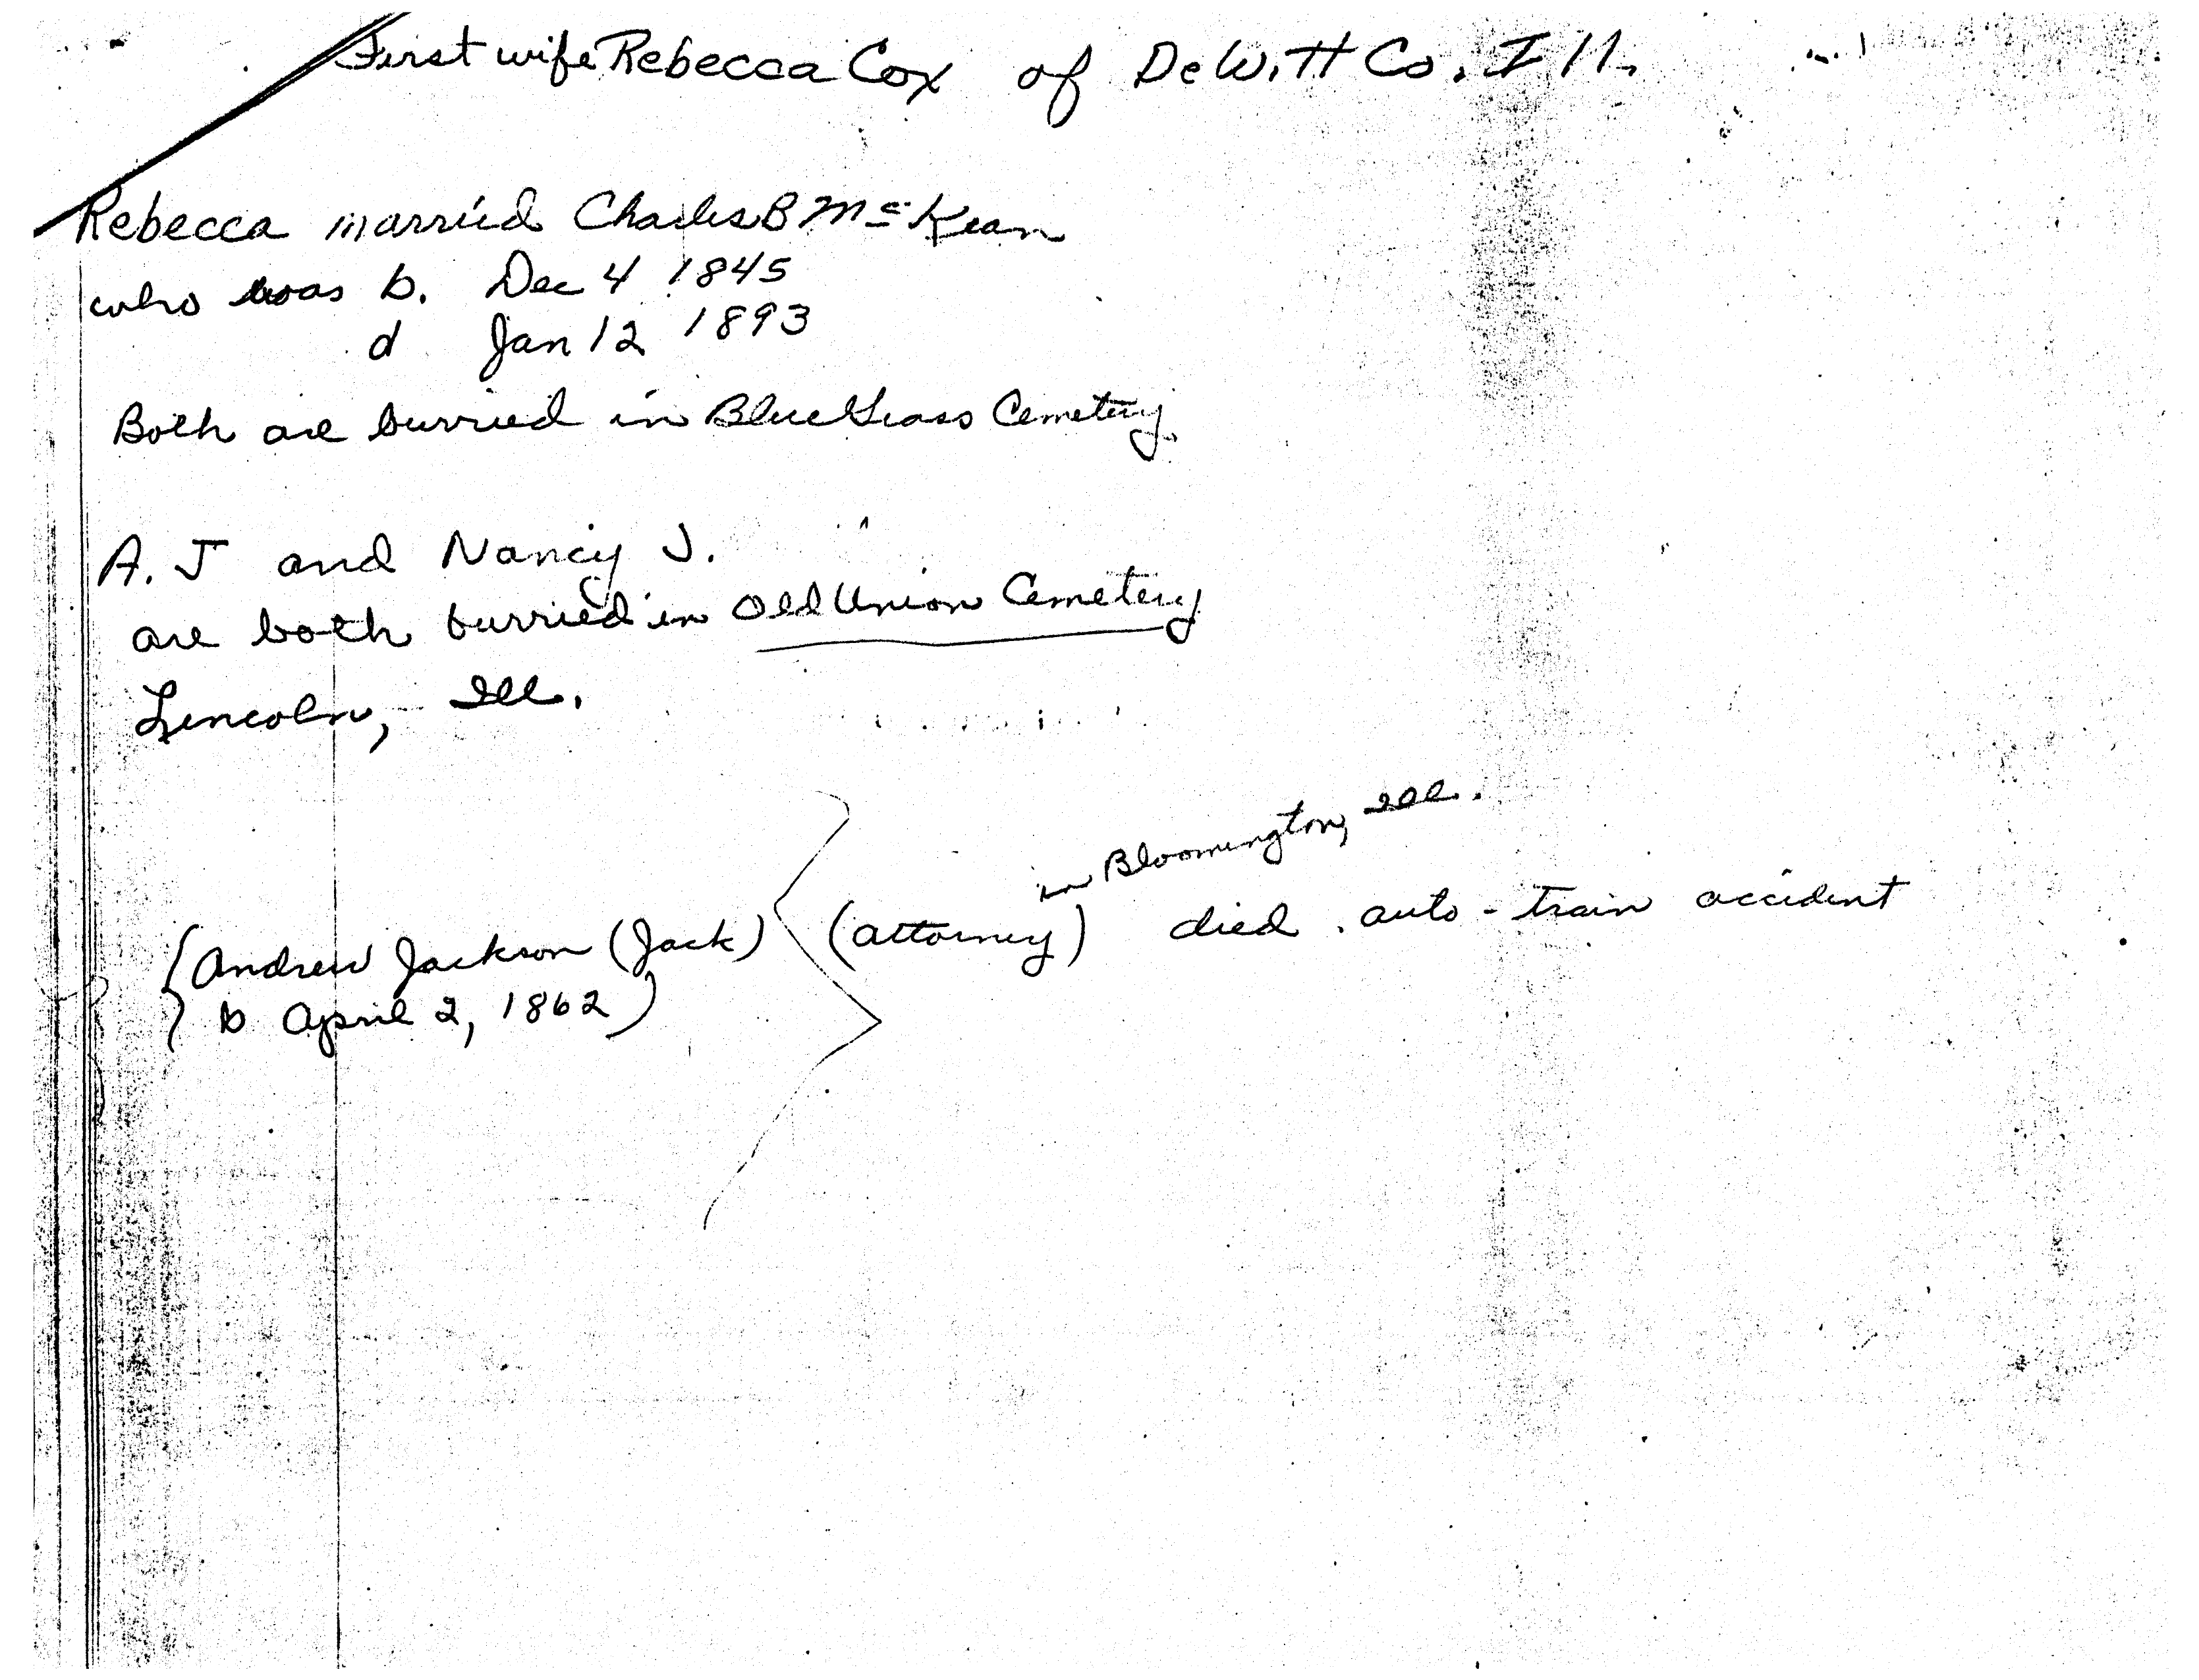 First wife Rebecca Cox of DeWitt Co. Ill.
Rebecca married Charles B McKean
who was b. Dec 4 1845
d Jan 12 1893
Both are burried in BlueGrass Cemetery
A. J and Nancy J.
are both burried in Old Union Cemetery
Lincoln, Ill.
in Bloomington, Ill.
{Andrew Jackson (Jack) (attorney) died auto-train accident
b April 2, 1862)